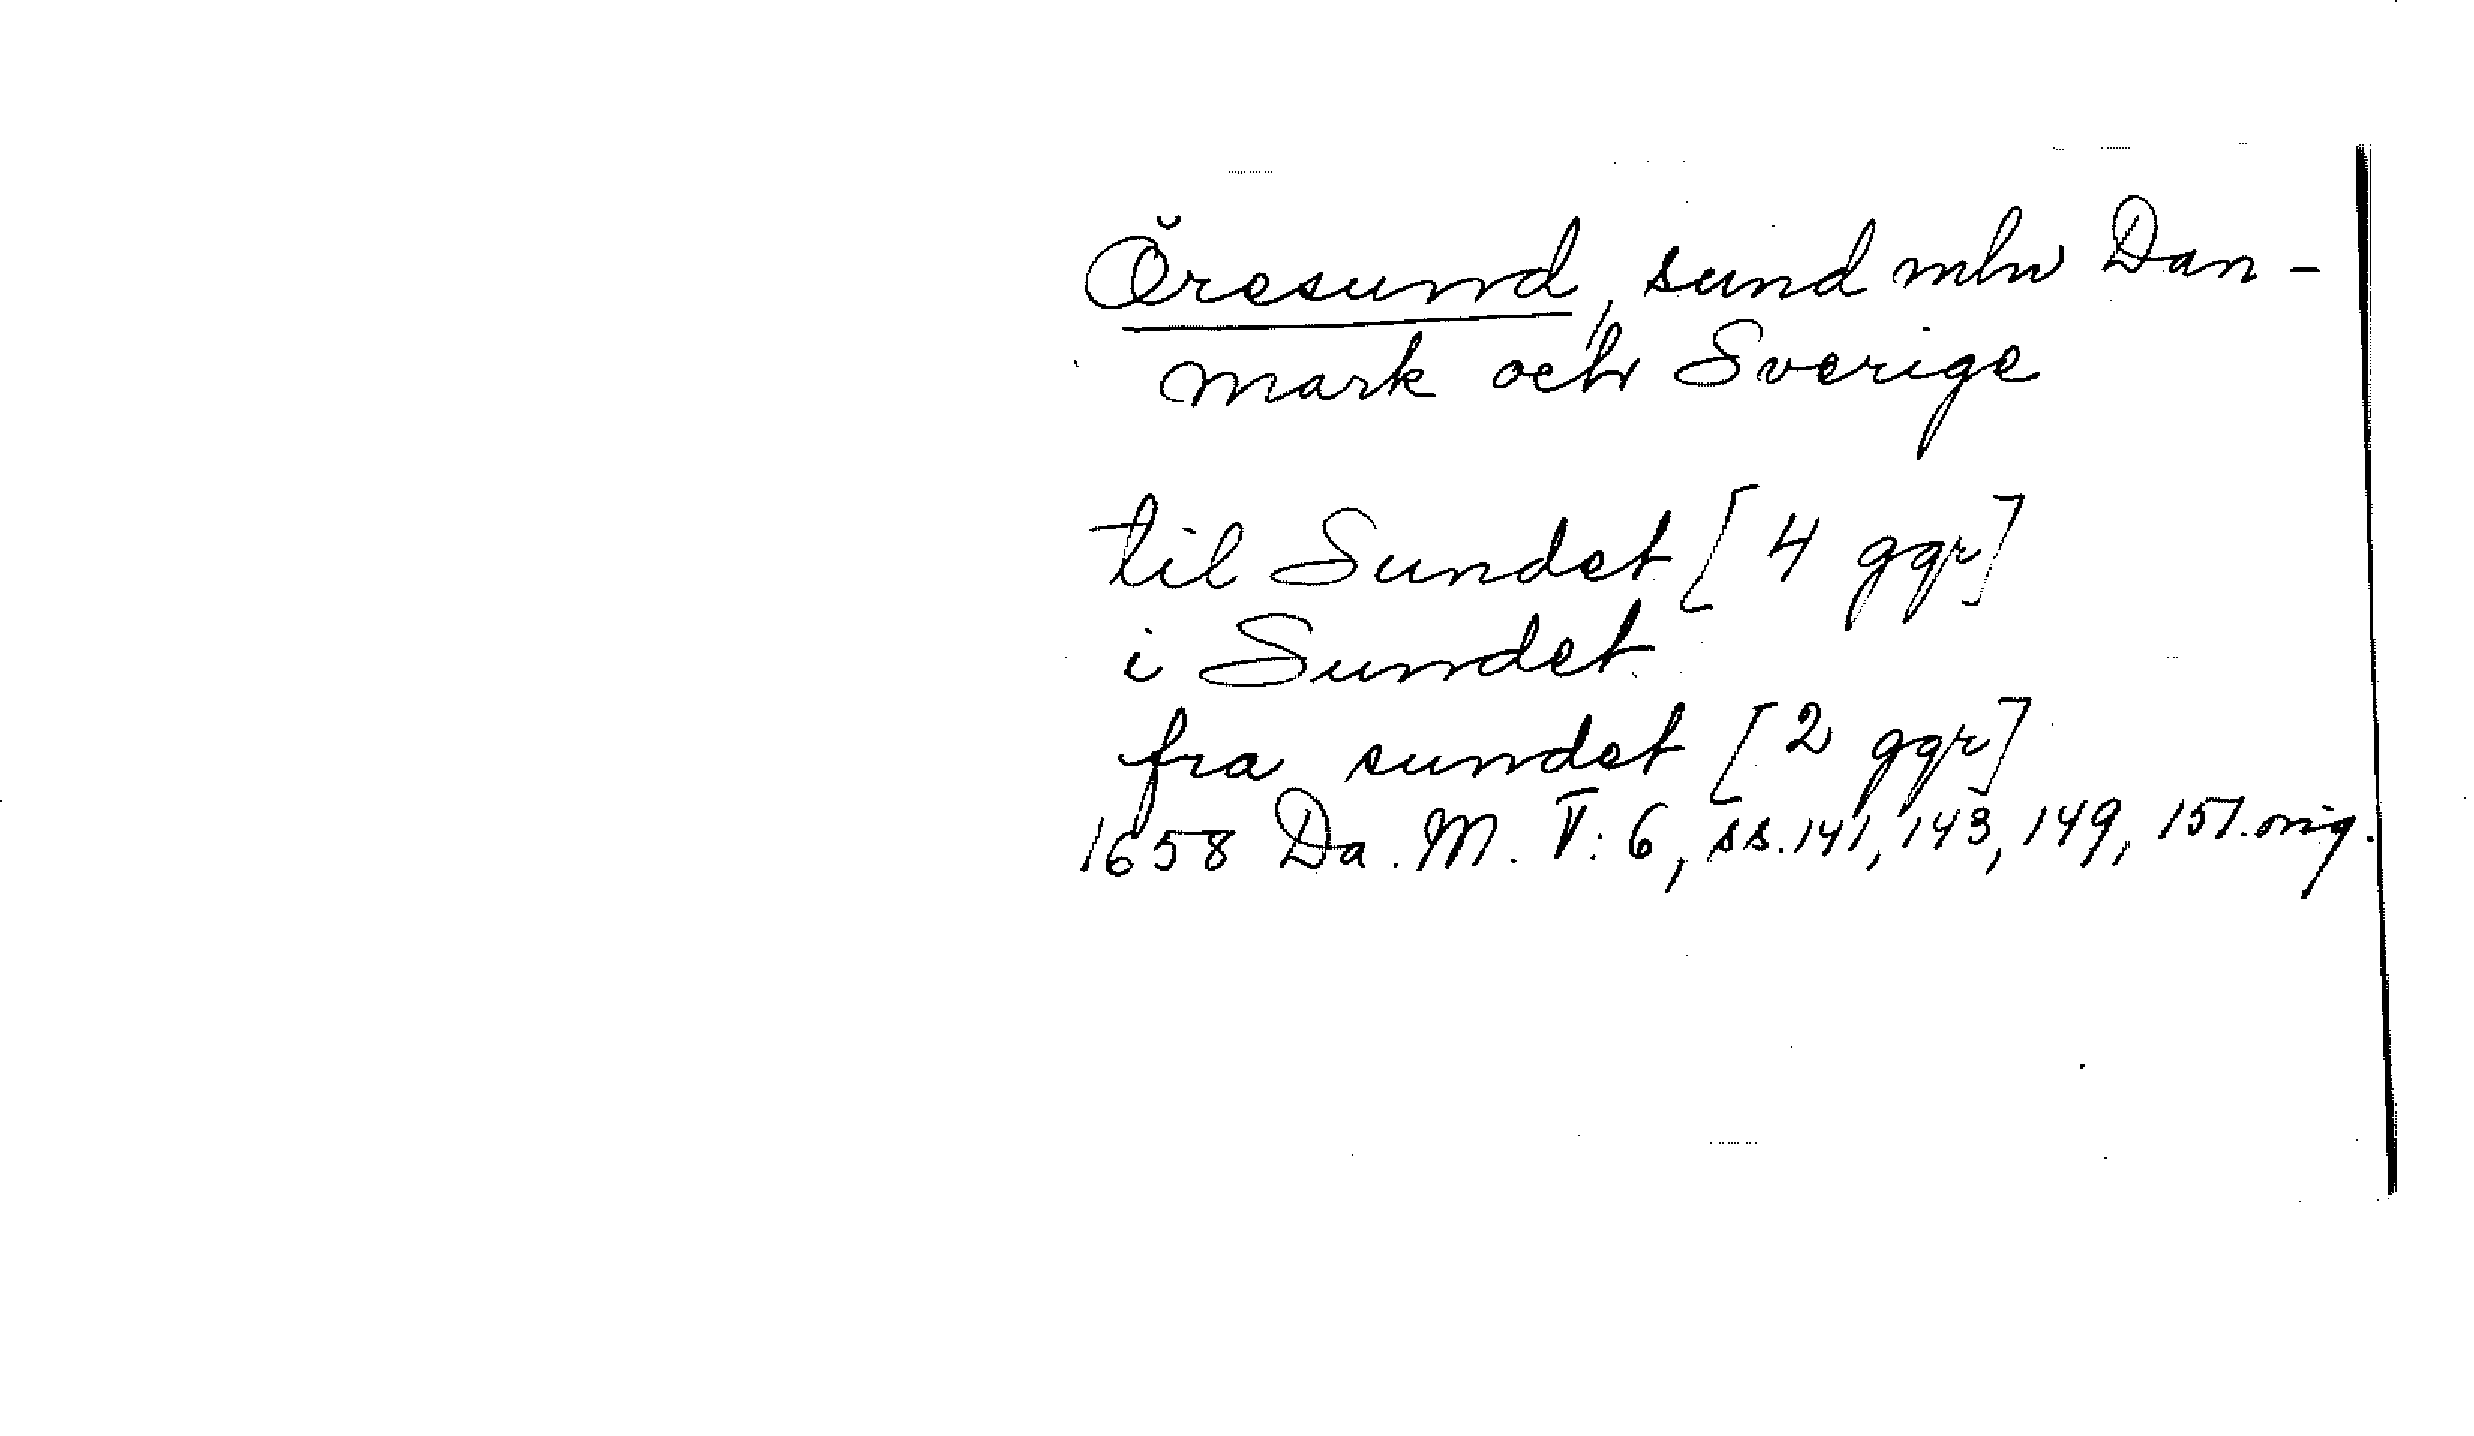 Öresund, sund mln Dan-
mark och Sverige
til Sundet [4 ggr]
i Sundet
fra sundet [2 ggr]
1658 Da. M. V: 6, ss. 141, 143, 149, 151. orig.